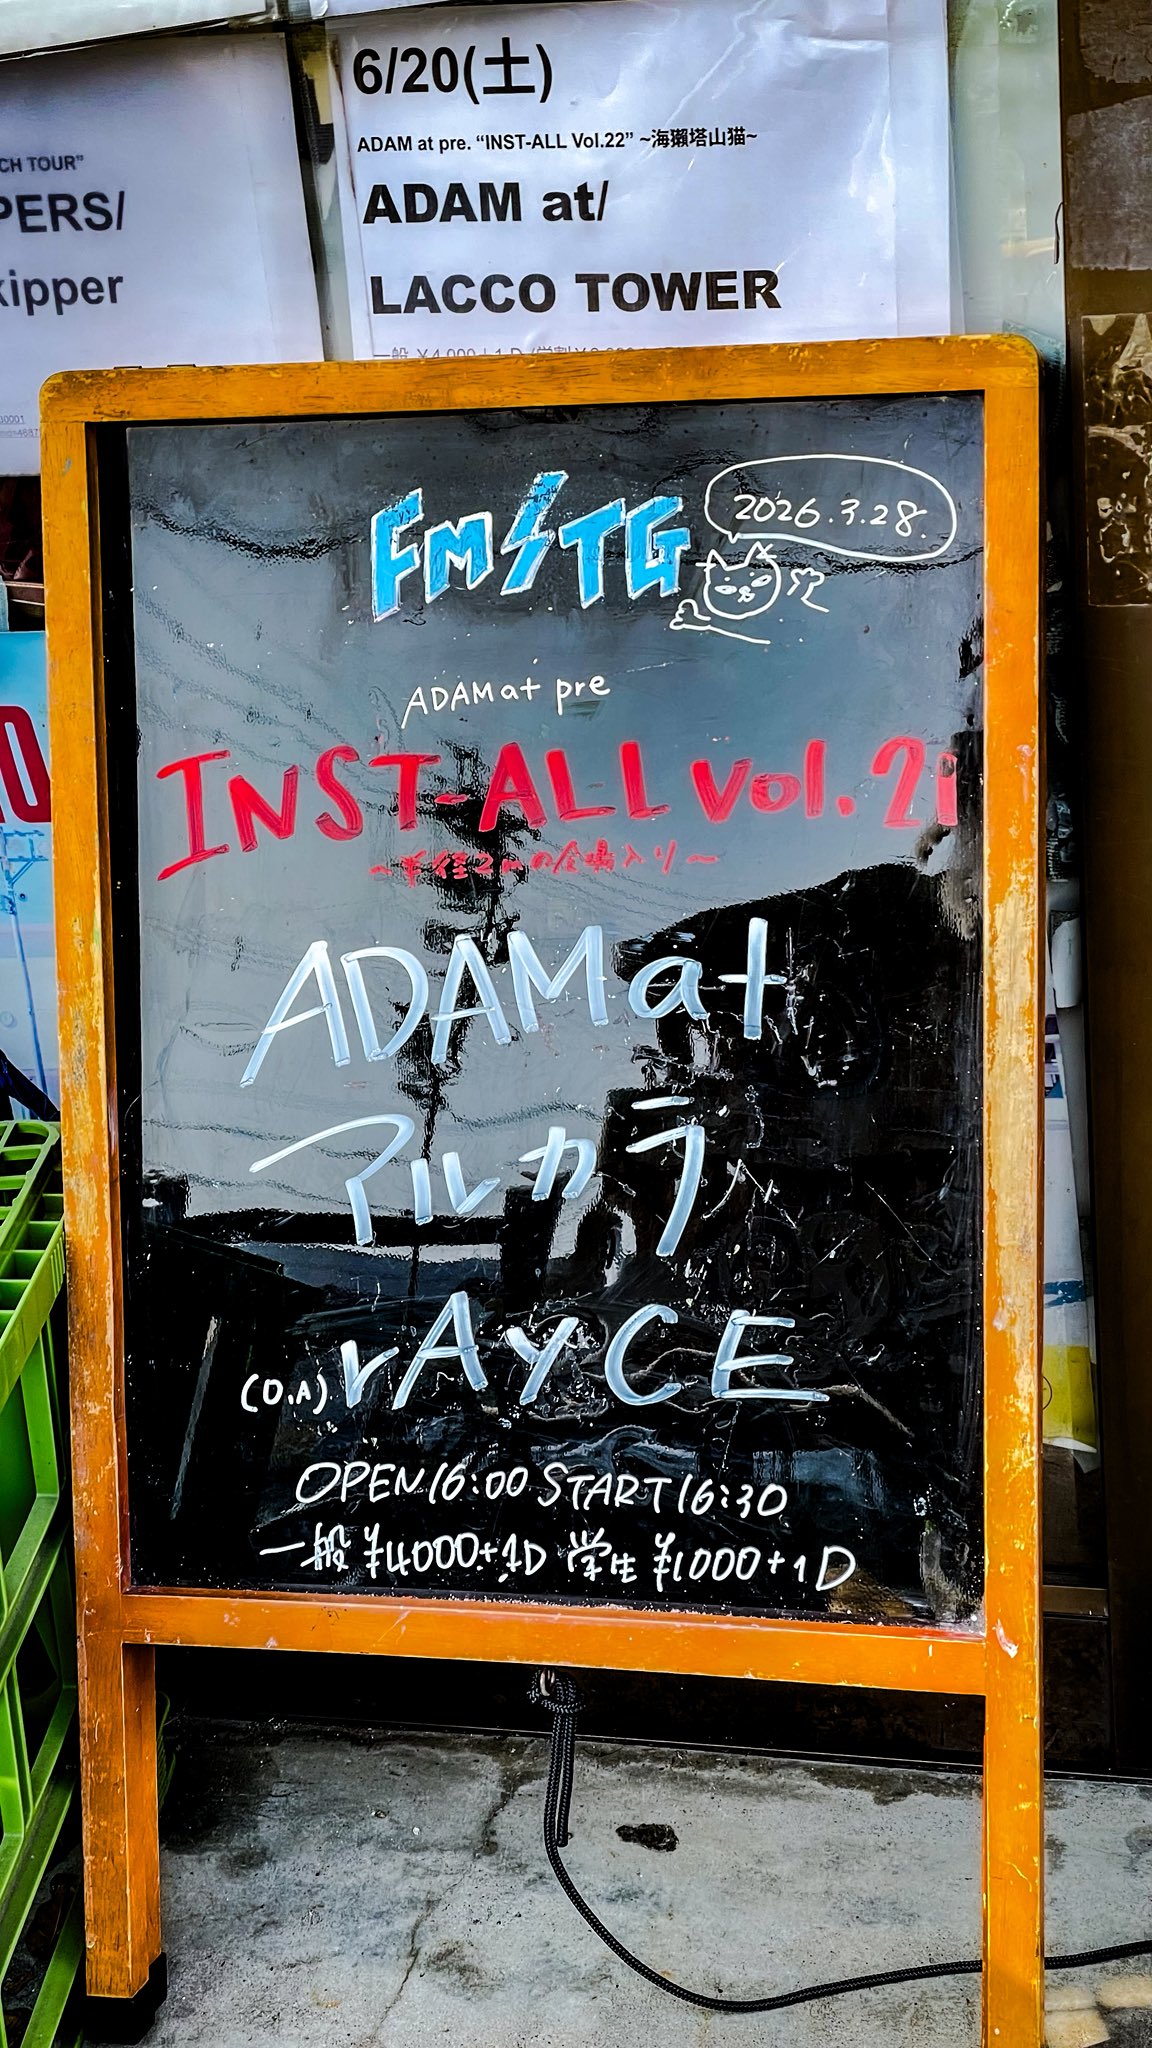 CH TOUR”
PERS/
kipper
6/20(土)
ADAM at pre. “INST-ALL Vol.22” ~海獺塔山猫~
ADAM at/
LACCO TOWER
FMSTG
2026.3.28.
ADAM at pre
INST-ALL vol.21
~半径2mの会場入り~
ADAM at
アルカラ
(O.A) rAyCE
OPEN 16:00 START 16:30
一般 ¥4000+1D 学生 ¥1000+1D